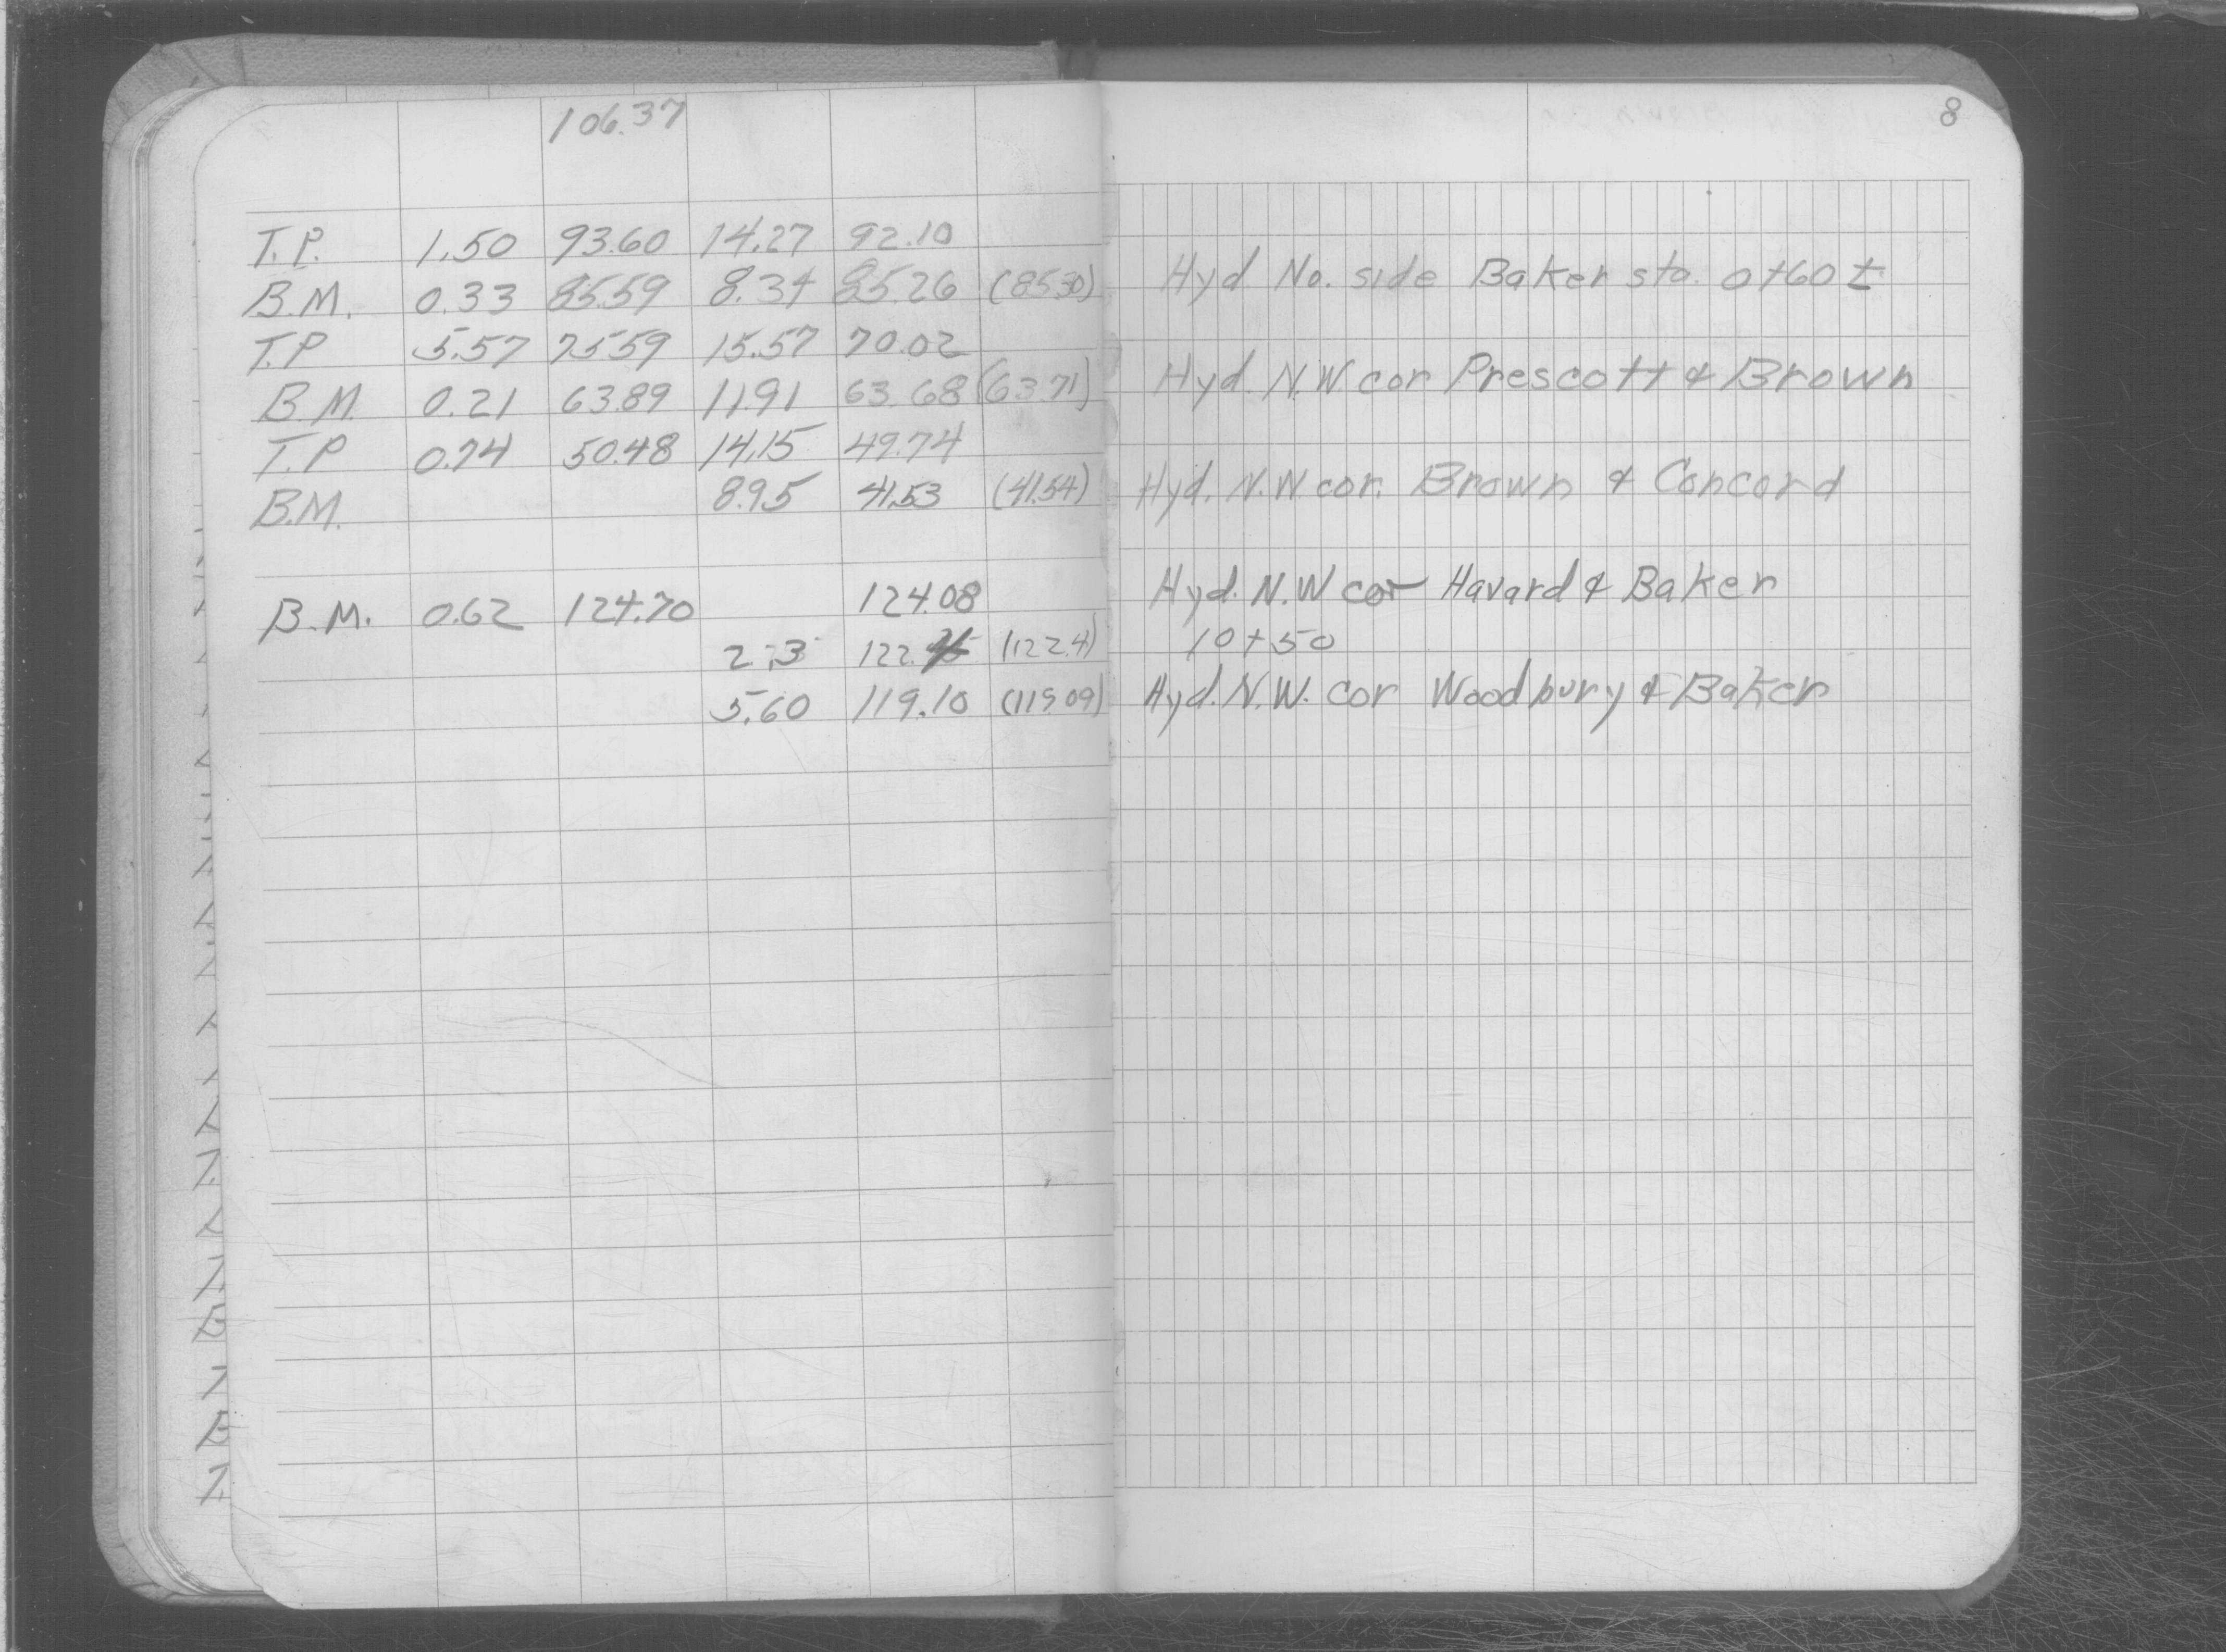 8
106.37
T.P. 1.50 93.60 14.27 92.10
B.M. 0.33 85.59 8.34 85.26 (85.30) Hyd. No. side Baker sta. 0+60 ±
T.P 5.57 75.59 15.57 70.02
B.M. 0.21 63.89 11.91 63.68 (63.71) Hyd. N.W cor Prescott & Brown
T.P 0.74 50.48 14.15 49.74
B.M. 8.95 41.53 (41.54) Hyd. N.W cor. Brown & Concord
B.M. 0.62 124.70 124.08 Hyd. N.W cor Havard & Baker
2.3 122. (122.4) 10+50
5.60 119.10 (119.09) Hyd. N.W. cor Woodbury & Baker